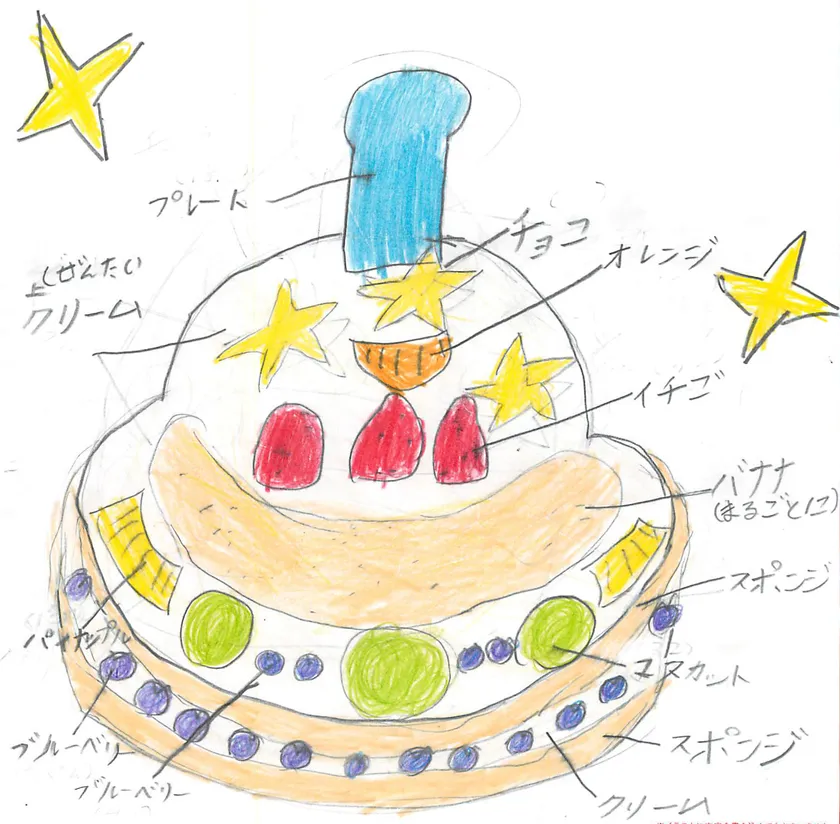 プレート
チョコ
オレンジ
上(ぜんたい
クリーム
イチゴ
バナナ
(まるごとに)
スポンジ
パイナップル
マスカット
ブルーベリー
スポンジ
ブルーベリー
クリーム